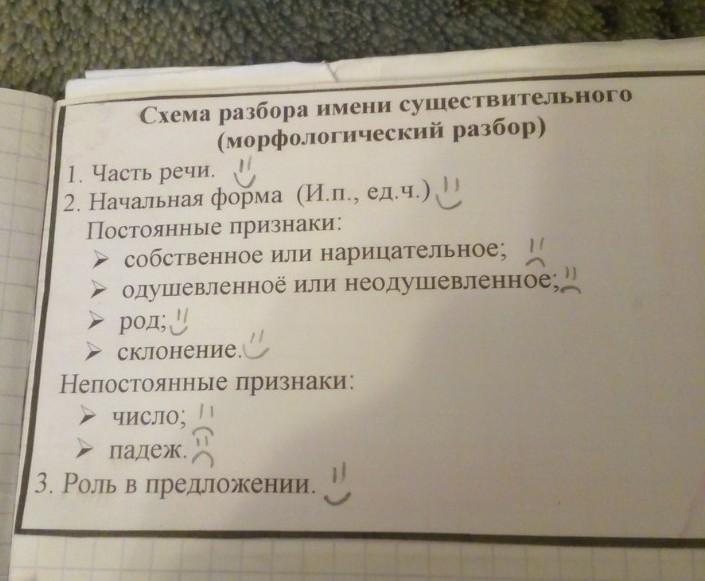 Схема разбора имени существительного
(морфологический разбор)
1. Часть речи.
2. Начальная форма (И.п., ед.ч.)
Постоянные признаки:
➤ собственное или нарицательное;
➤ одушевленноё или неодушевленное;
➤ род;
➤ склонение.
Непостоянные признаки:
➤ число;
➤ падеж.
3. Роль в предложении.